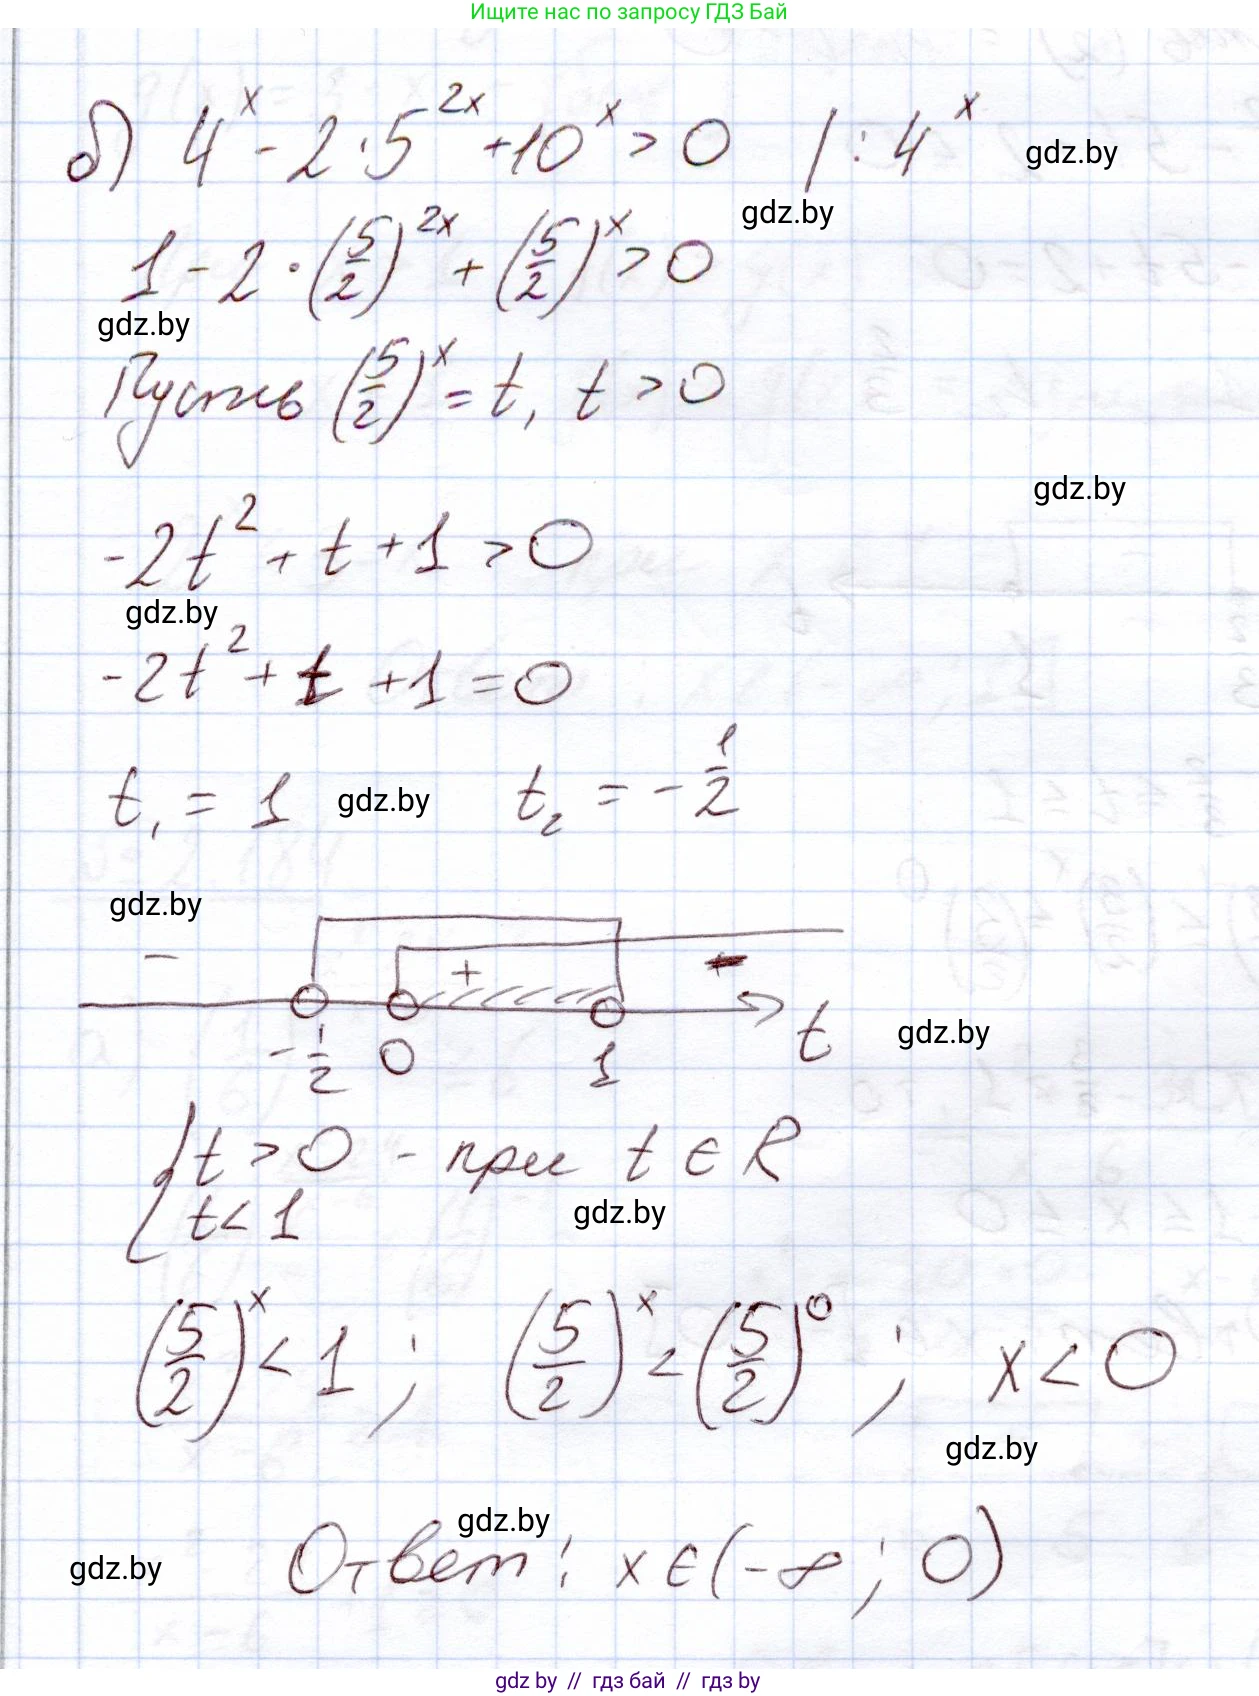 Ищите нас по запросу ГДЗ Бай
б) 4^x - 2·5^{2x} + 10^x > 0 | : 4^x
gdz.by
gdz.by
1 - 2·(5/2)^{2x} + (5/2)^x > 0
gdz.by
Пусть (5/2)^x = t, t > 0
gdz.by
-2t² + t + 1 > 0
gdz.by
-2t² + t + 1 = 0
t₁ = 1 gdz.by t₂ = -1/2
gdz.by
- + -
-1/2 0 1 t
gdz.by
{ t > 0 - при t ∈ R
t < 1
gdz.by
(5/2)^x < 1 ; (5/2)^x < (5/2)^0 ; x < 0
gdz.by
gdz.by
Ответ: x ∈ (-∞; 0)
gdz.by
gdz by // гдз бай // гдз by